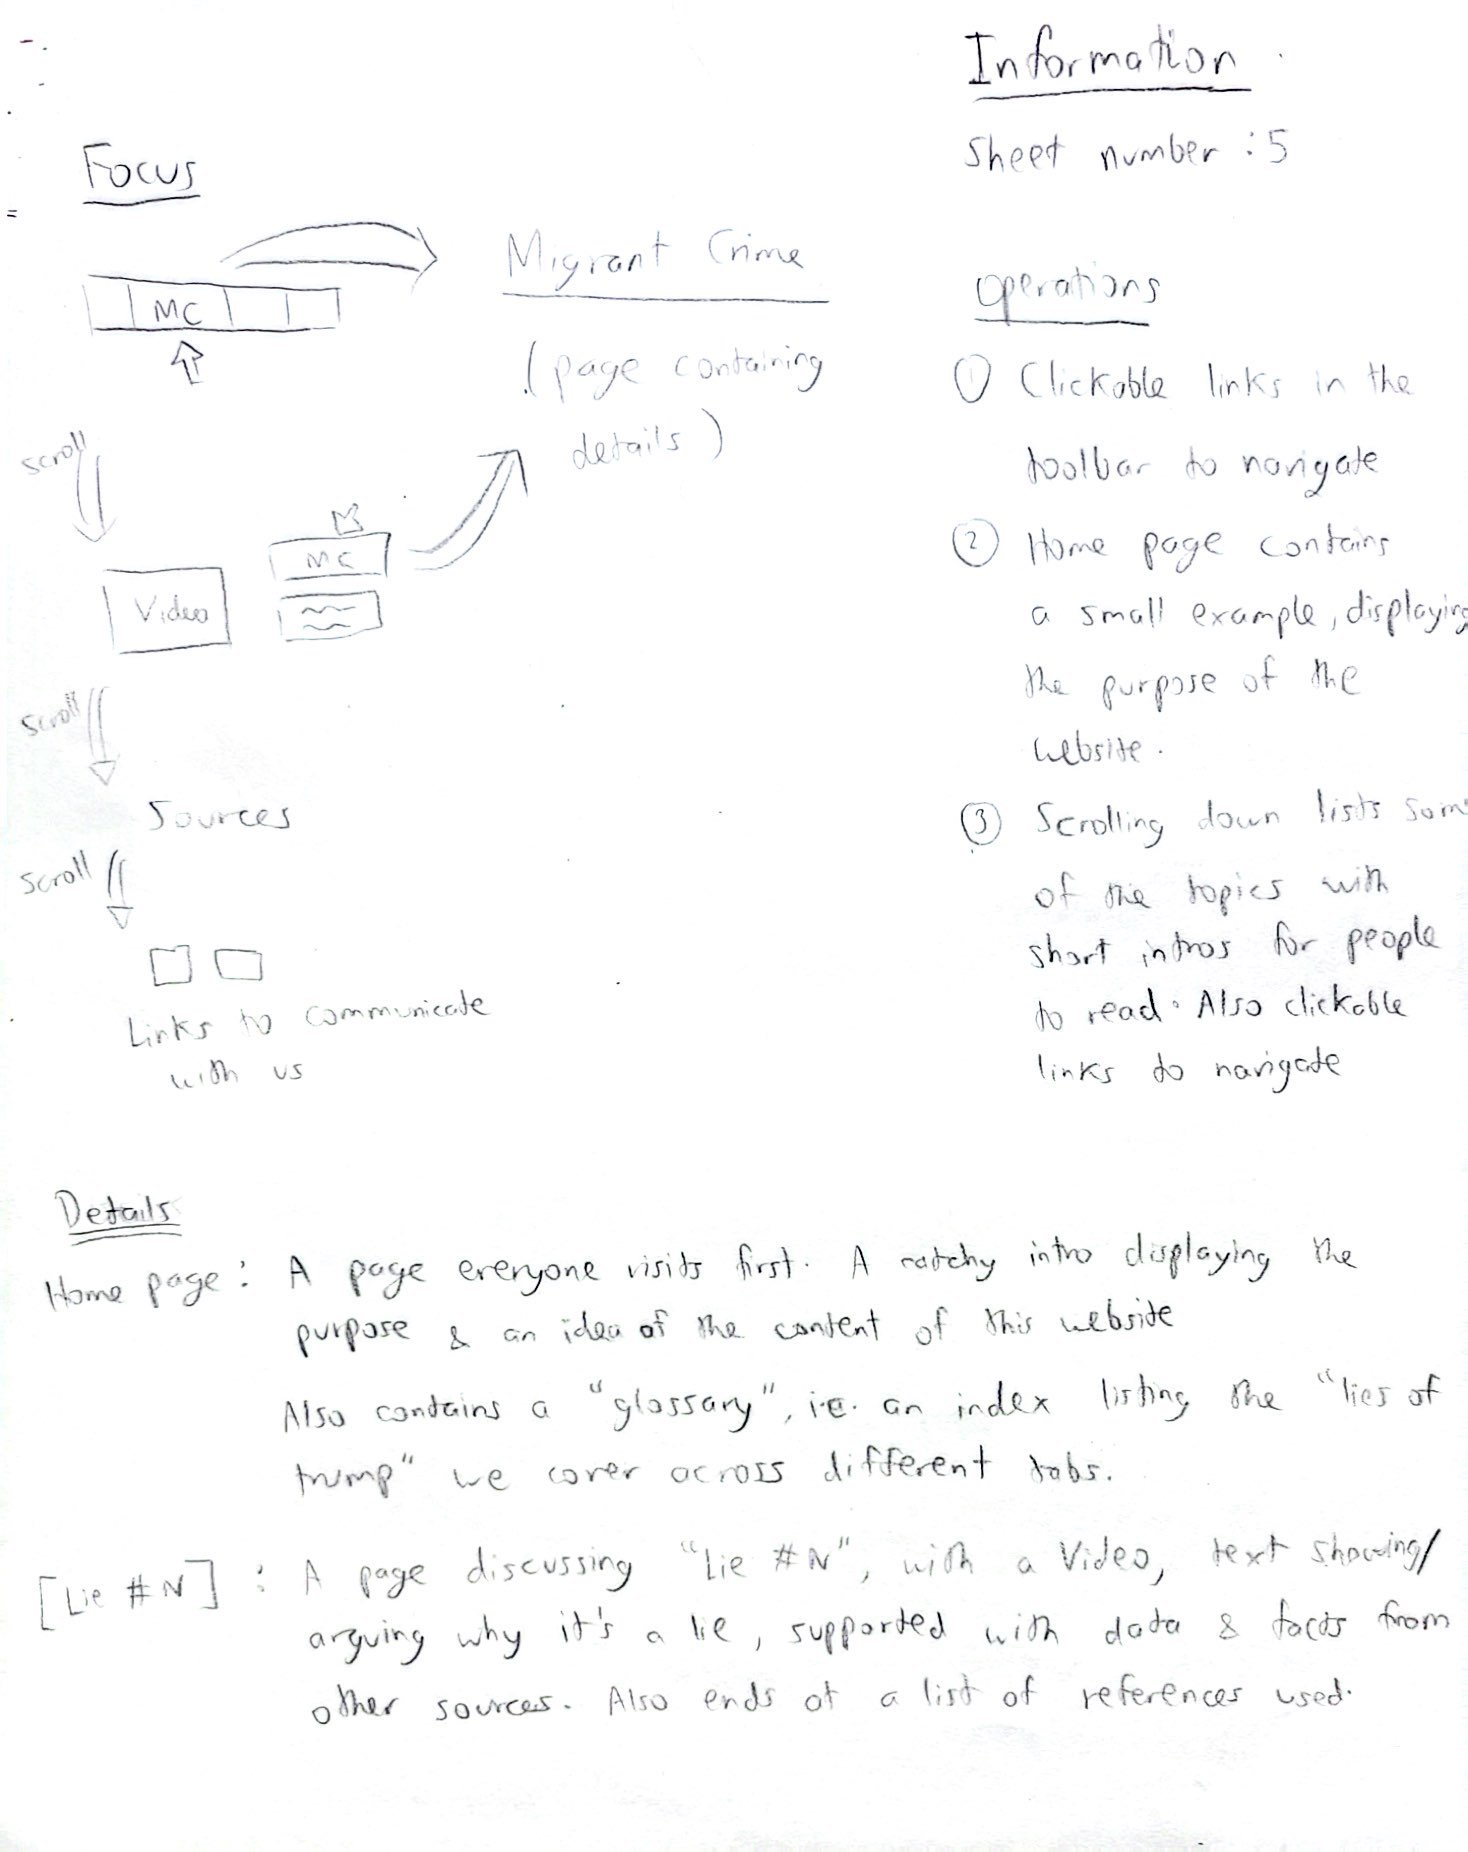 Information
Sheet number : 5
Focus
MC
Migrant Crime
(page containing
details)
scroll
MC
Video
scroll
Sources
scroll
Links to communicate
with us
Operations
① Clickable links in the
toolbar to navigate
② Home page contains
a small example, displaying
the purpose of the
website.
③ Scrolling down lists som
of the topics with
short intros for people
to read. Also clickable
links to navigate
Details
Home page : A page everyone visits first. A catchy intro displaying the
purpose & an idea of the content of this website
Also contains a "glossary", i.e. an index listing the "lies of
trump" we cover across different tabs.
[Lie #N] : A page discussing "Lie #N", with a Video, text showing/
arguing why it's a lie, supported with data & facts from
other sources. Also ends at a list of references used.